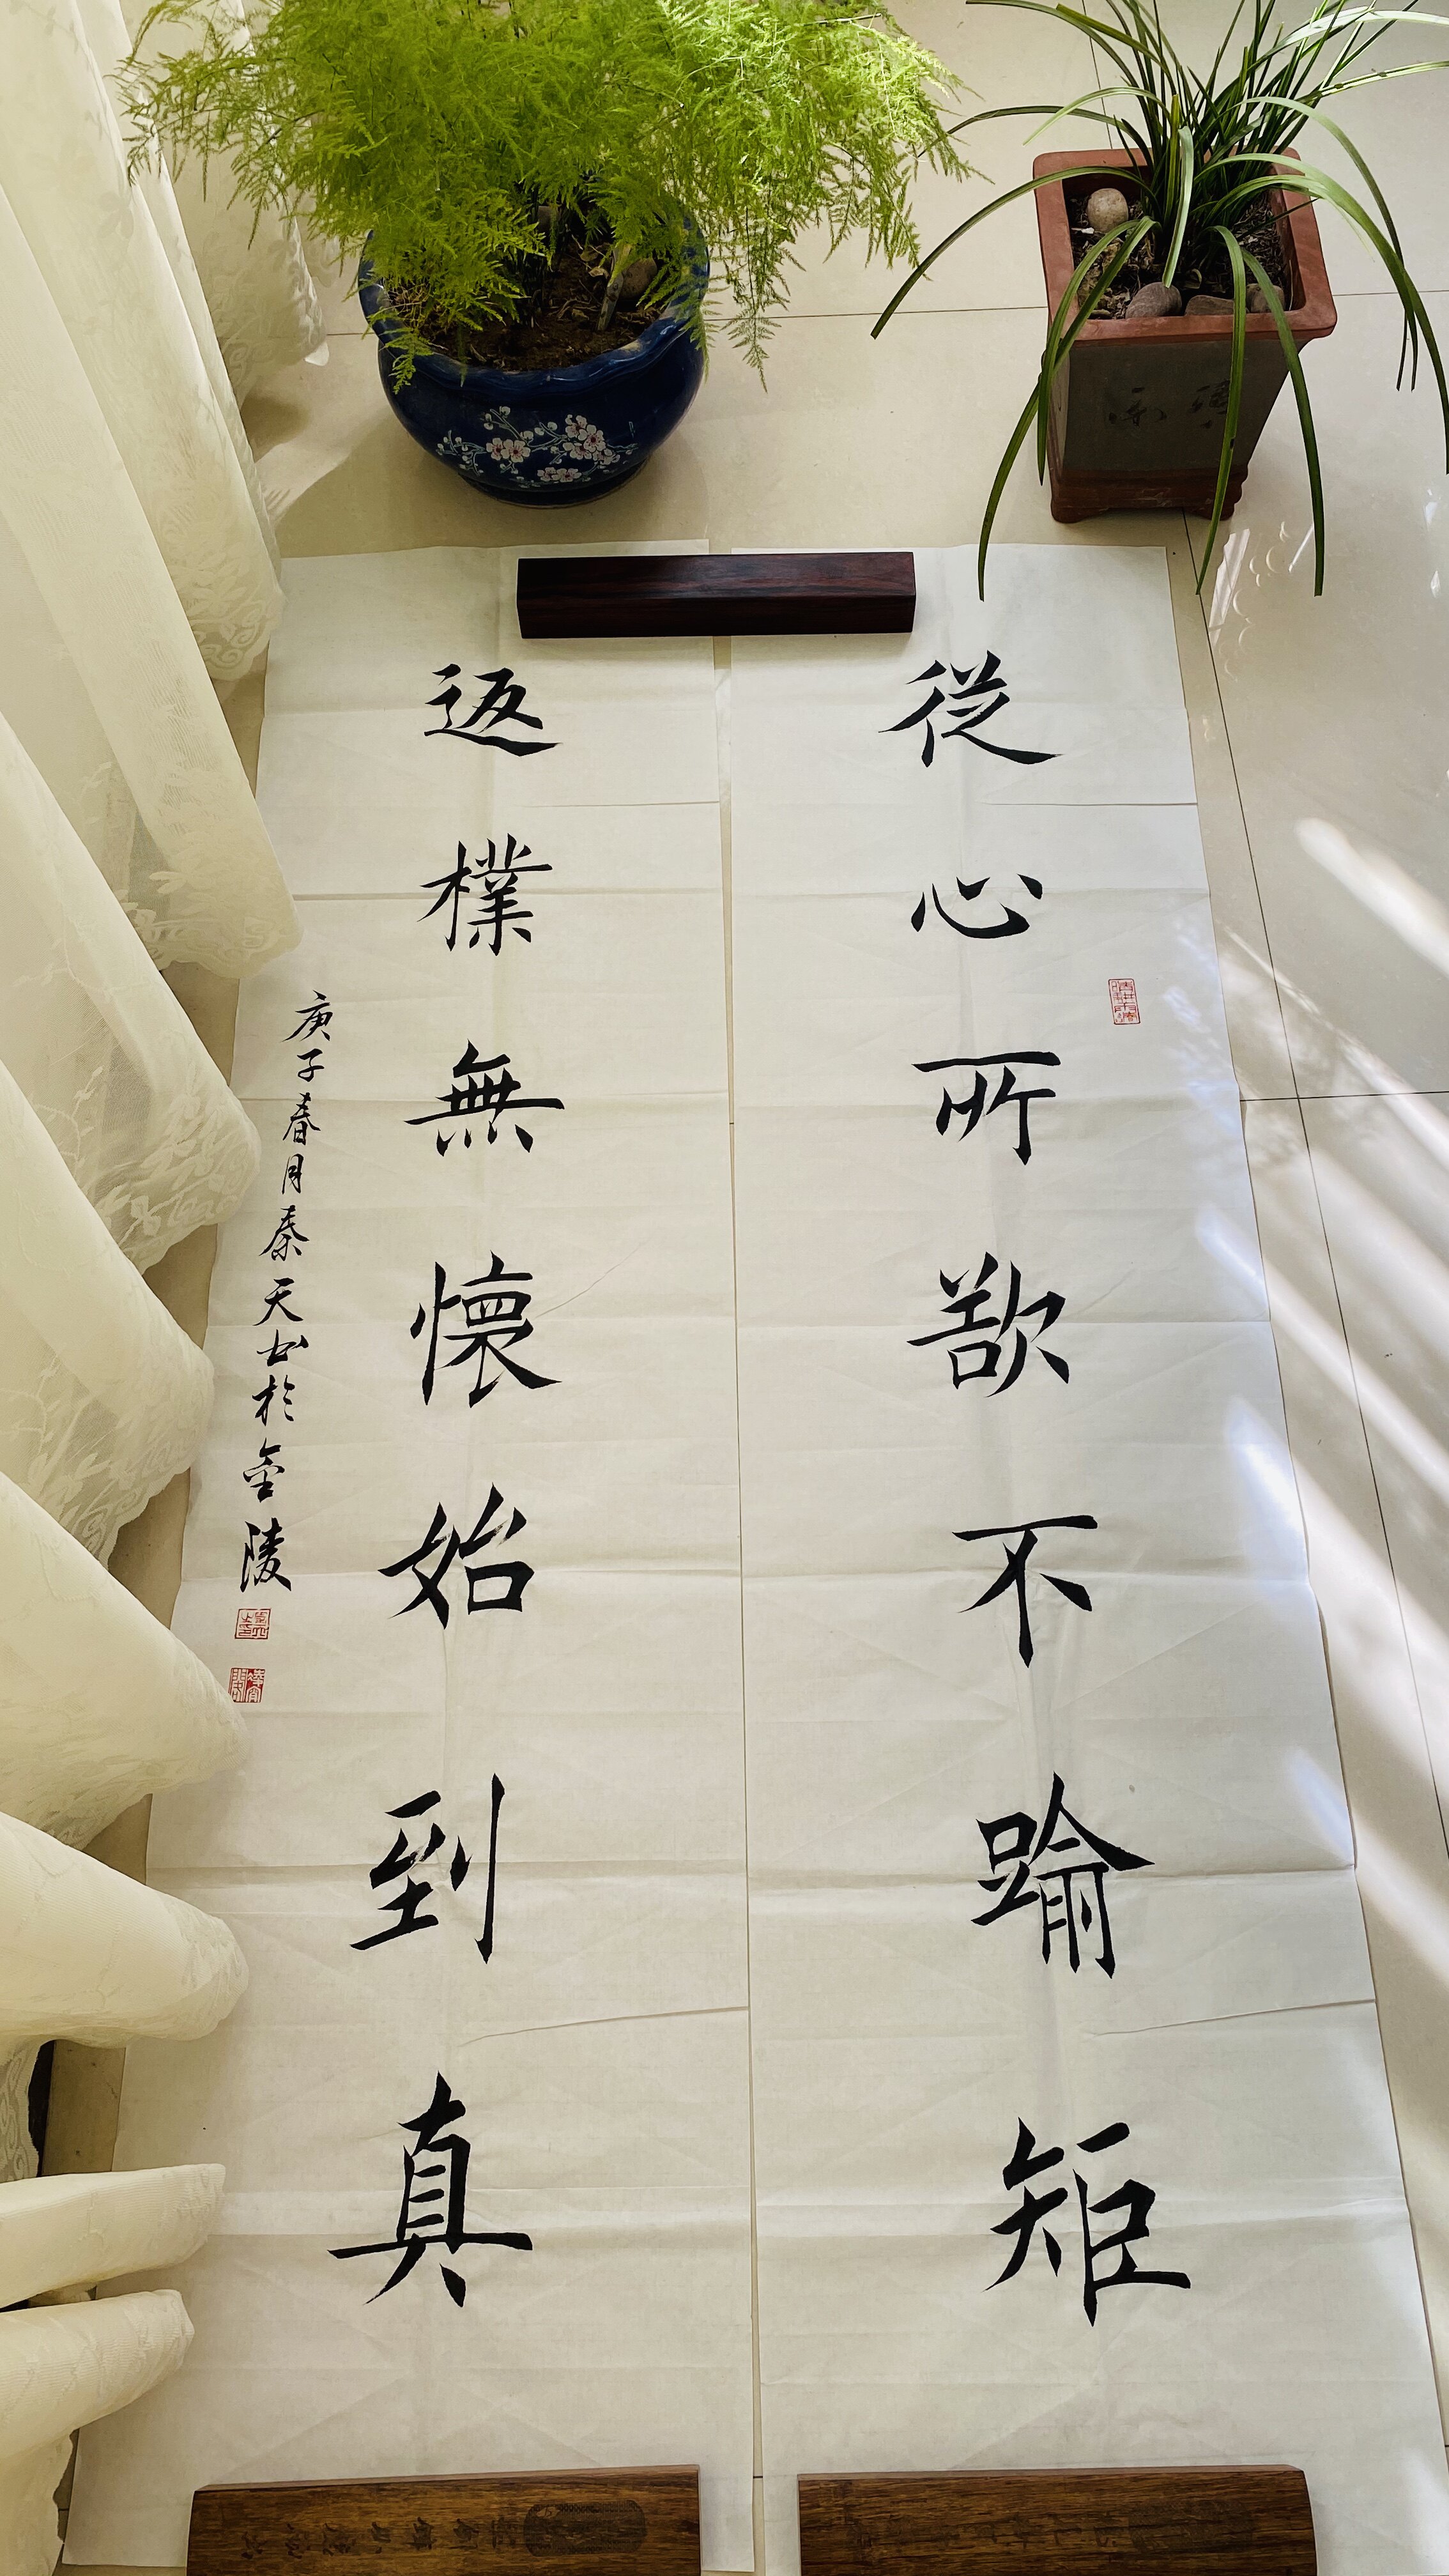 從心所欲不踰矩
返樸無懷始到真
庚子春月秦天书於金陵